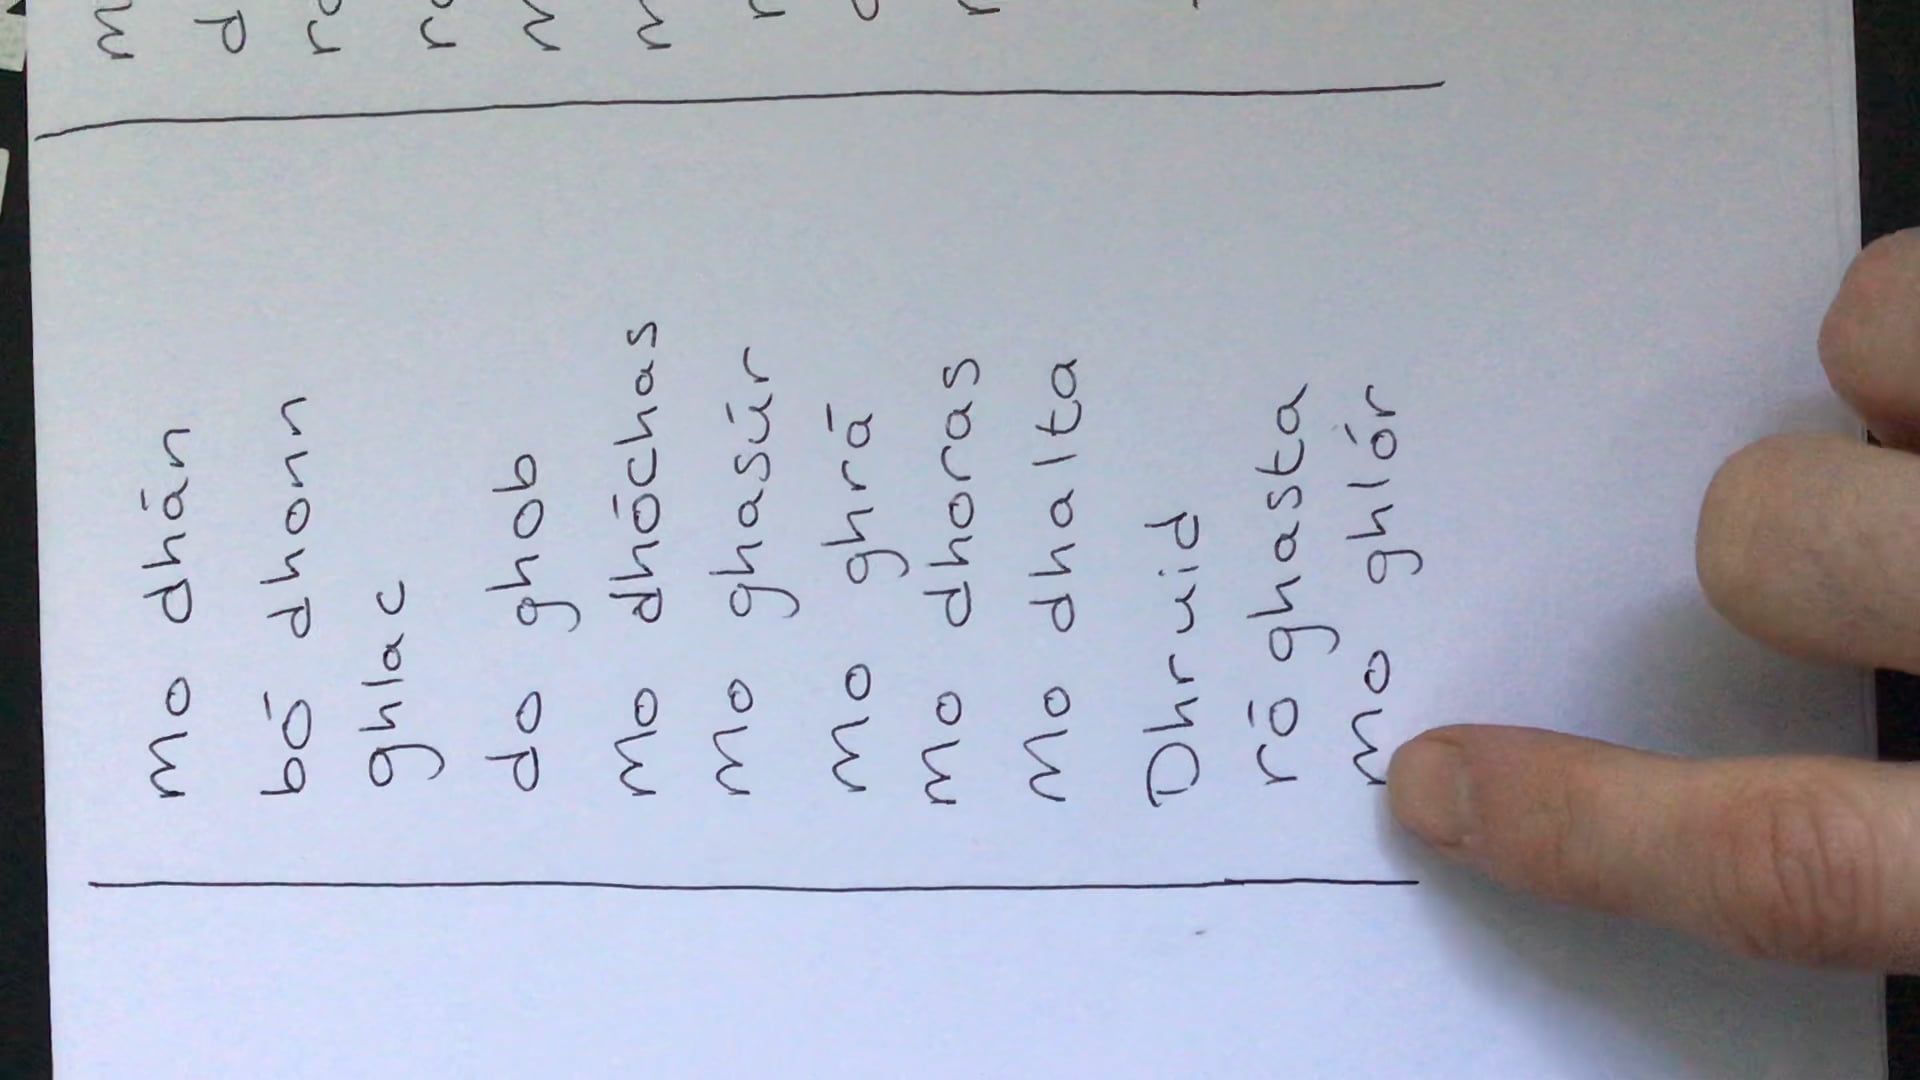 mo dhán
bó dhonn
ghlac
do ghob
mo dhóchas
mo ghasúr
mo ghrá
mo dhoras
mo dhalta
Dhruid
ró ghasta
mo ghlór